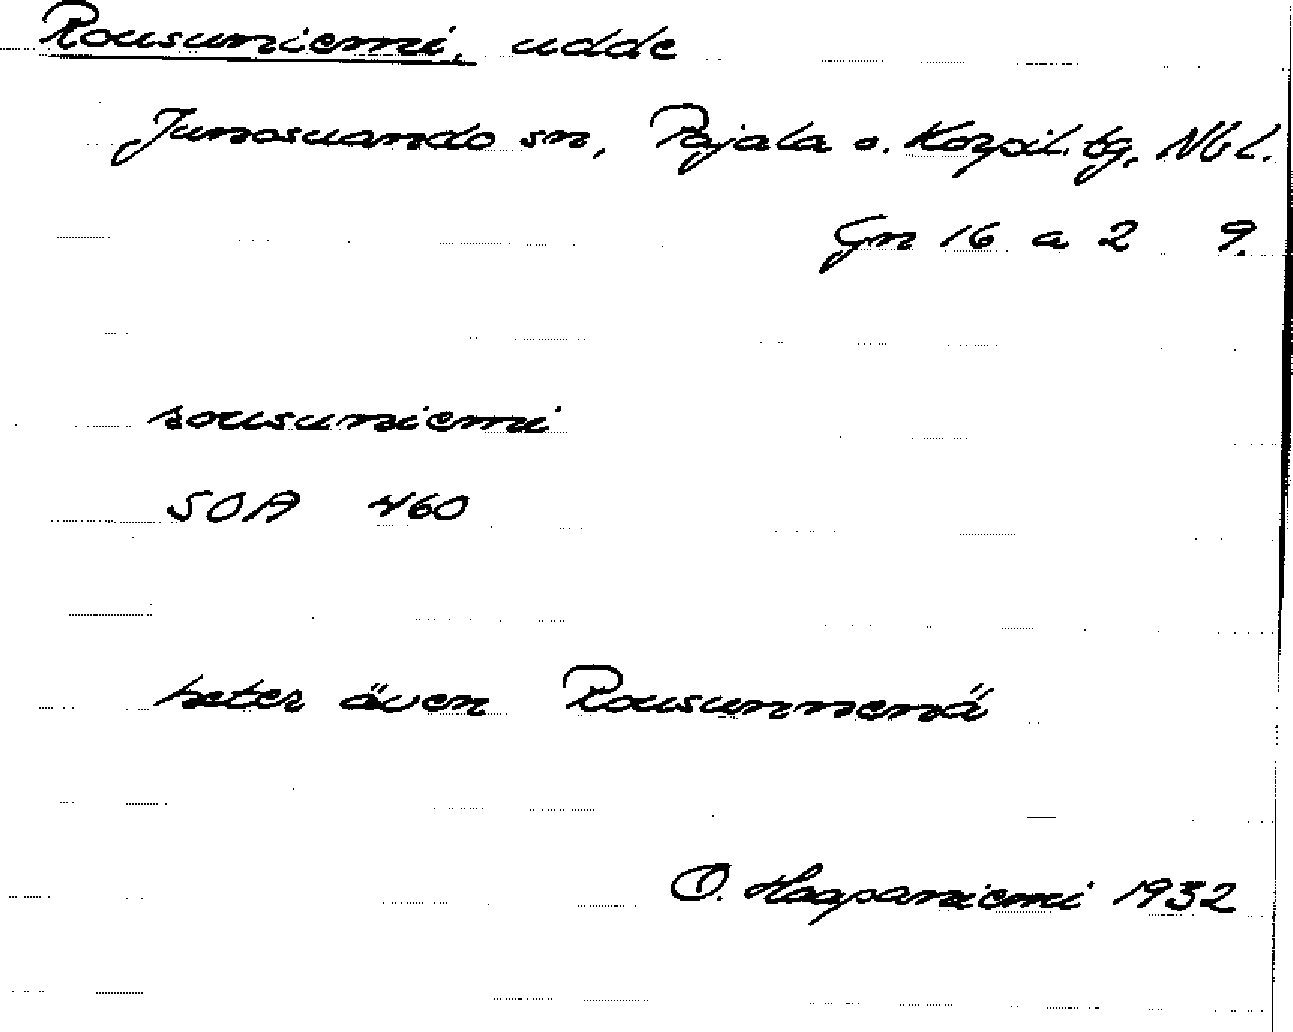 Rousuniemi, udde
Junosuando sn, Pajala o. Korpil. tg, Nb l.
Gn 16 a 2 9.
rousuniemi
SOA 460
heter även Rousunnenä
O. Haapaniemi 1932